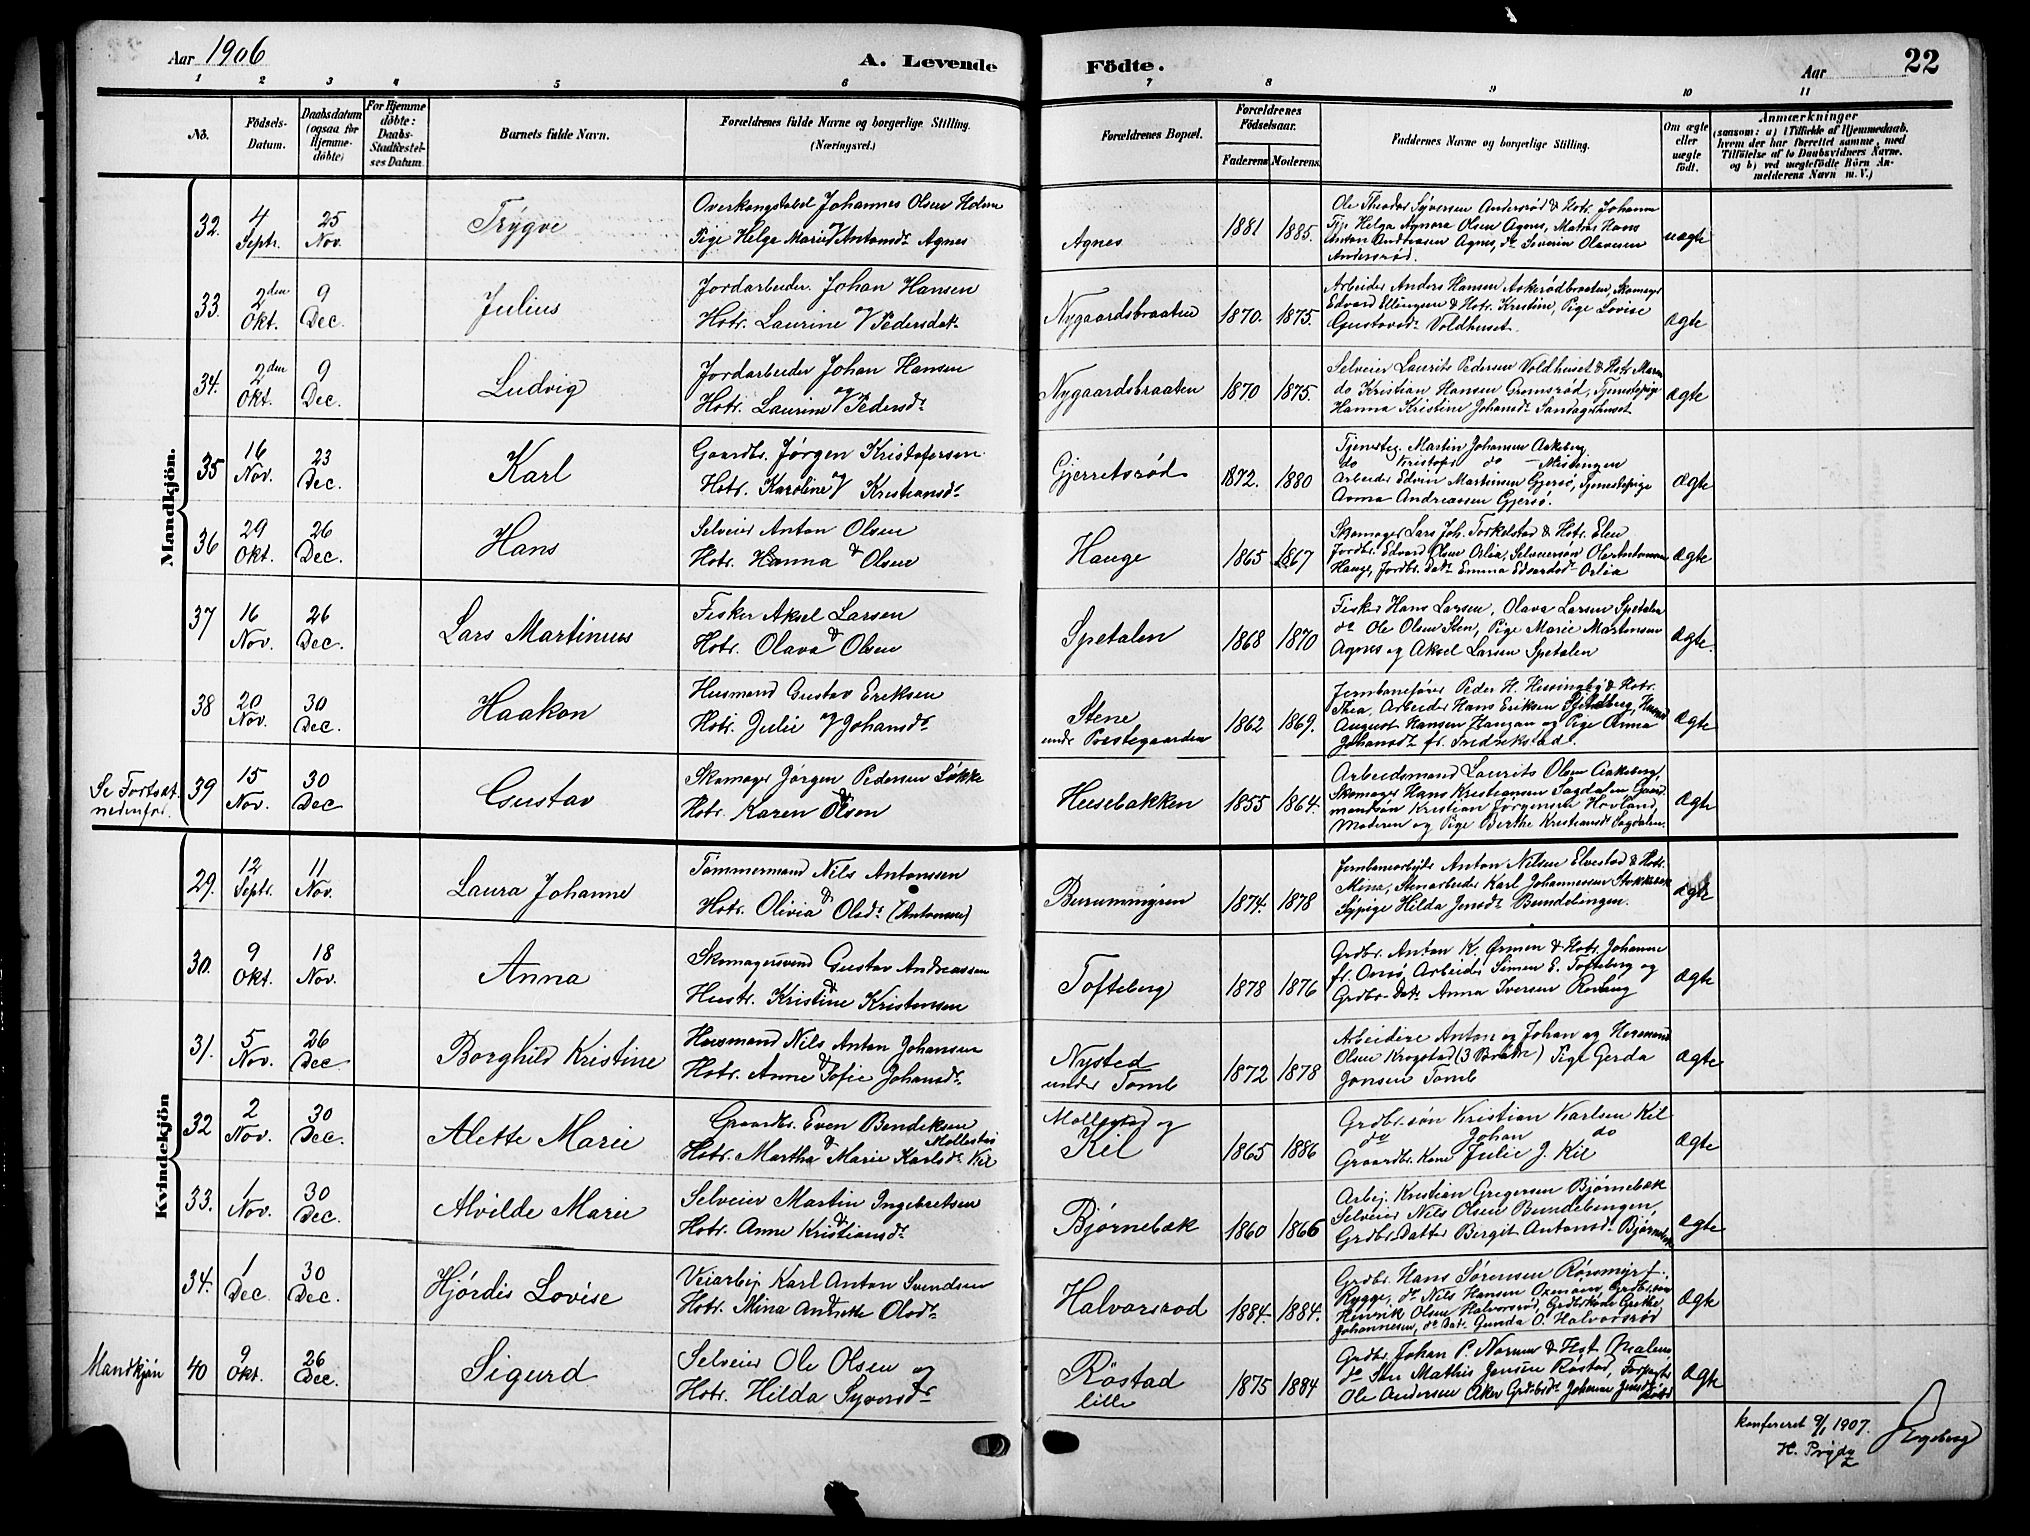 Aar 1906
A. Levende Födte.
Aar
22
1 2 3 4 5 6 7 8 9 10 11
No.
Födsels-Datum.
Daabsdatum (ogsaa for Hjemme-döbte)
For Hjemme döbte: Daabs-Stadfæstelses Datum.
Barnets fulde Navn.
Forældrenes fulde Navne og borgerlige Stilling. (Næringsvei.)
Forældrenes Bopæl.
Forældrenes Födselsaar.
Faderens Moderens.
Faddernes Navne og borgerlige Stilling.
Om ægte eller uægte födt.
Anmærkninger
(saasom: a) i Tilfælde af Hjemmedaab, hvem der har forrettet samme, med Tilföielse af to Daabsvidners Navne. og b) ved uægtefödte Börn Anmelderens Navn m. V.)
Mandkjön.
32. 4 Septr. 25 Nov. Trygve
Overkonstabel Johannes Olsen Holm
Pige Helga Marie Antonsdt Agnes
Agnes 1881 1885.
Ole Theodor Syversen Andersrød & Hotr. Johanne
Tjp. Helga Agnora Olsen Agnes, Matros Hans
Anton Andreasen Agnes, do Severin Olavesen
Andersrød.
uægte
33. 2den Okt. 9 Dec. Julius
Jordarbeider Johan Hansen
Hotr. Laurine Pedersdtr
Nygaardsbraaten 1870. 1875.
Arbeider Anders Hansen Askerødbraaten, Skomager
Edvard Ellingsen & Hotr. Kristine, Pige Lovise
Gustavsdt Voldhuset.
Ægte
34. 2den Okt. 9 Dec. Ludvig
Jordarbeider Johan Hansen
og
Hotr. Laurine Pedersdt
Nygaardsbraaten 1870 1875.
Selveier Laurits Pedersen Voldhuset & Hotr Maren
do Kristian Hansen Gromsrød, Tjenestepige
Hanna Kristine Johansdt Sandagerhuset.
Ægte
35 16 Nov. 23 Dec. Karl
Gaardbr. Jørgen Kristofersen
og
Hotr. Karoline Kristiansdt
Gjerretsrød 1872. 1880
Tjenesteg. Martin Johansen Aakeberg.
do Kristofer do Missingen
Arbeider Edvin Martinsen Gjersø, Tjenestepige
Anna Andreassen Gjersø.
Ægte
36 29 Okt. 26 Dec. Hans
Selveier Anton Olsen
Hotr. Hanna & Olsen
Hauge 1865 1867
Skomager Lars Joh. Torkelstad & Hotr. Elen
Jordbr. Edvard Olsen Orlia, Selveiersøn Ole Antonsen
Hauge, Jordbr. Datr Emma Edvardsdt Orlia
Ægte
37 16 Nov. 26 Dec. Lars Martinius
Fisker Aksel Larsen
&
Hotr. Olava Olsen
Spetalen 1868 1870
Fisker Hans Larsen, Olava Larsen Spetalen
do Ole Olsen Sten, Pige Marie Martinsen
Agnes og Aksel Larsen Spetalen
Ægte.
38 20 Nov. 30 Dec. Haakon
Husmand Gustav Eriksen
Hotr. Julie og Johansdt
Stene
under Prestegaarden 1862 1869.
Jernbanefører Peder H. Husingby & Hotr.
Thea, Arbeider Hans Eriksen
August Hansen Haugan og Pige Anna
Johansdt fr. Fredrikstad.
Ægte
Se Fortsæt. nedenfor.
39 15 Nov. 30 Dec Gustav
Skomager Jørgen Pedersen Løkke
&
Hotr. Karen Olsen
Husebakken 1855 1864.
Arbeidsmand Laurits Olsen Aakeberg,
Skomager Hans Kristiansen Sagdalen Gaard
mandsøn Kristian Jørgensen Hovland,
Moderen og Pige Berthe Kristiansdt Sagdalen.
Ægte
Kvindekjön
29. 12 Septr. 11 Nov. Laura Johanne
Tømmermand Nils Antonsen
&
Hotr. Olivia Olsdt (Antonsen)
Burummyren 1874. 1878
Jernbanearbeider Anton Nilsen Elvestad & Hotr.
Mina, Stenarbeider Karl Johannessen Stokkebæk
Sypige Hilda Jensdt Bundebingen.
ægte
30. 9 Okt. 18 Nov. Anna
Skomagersvend Gustav Andreassen
&
Hustr. Kristine Kristensen
Tofteberg 1878 1876
Grdbr. Anton K. Ørmen & Hotr. Johanne
fr. Onsø, Arbeider Simen E. Tofteberg og
Grdbr. Datr Anna Iversen Roung
Ægte
31. 5 Nov. 26 Dec Borghild Kristine
Husmand Nils Anton Johansen
&
Hotr. Anne Sofie Johansdt.
Nysted
under Tomb 1872 1878
Arbeidere Anton og Johan og Hermand
Olsen Krogstad (3 Brødre) Pige Gerda
Jonsen Tomb
Ægte
32 2 Nov. 30 Dec. Alette Marie
Gaardbr. Even Bendiksen
Mollestad
Hotr. Martha & Marie Karlsdt Kil
Mollestad og
Kil 1865 1886
Grdbr. søn Kristian Karlsen Kil
do Johan do
Gaardbr. Kone Julie J. Kil
Ægte
33. 1 Nov. 30 Dec. Alvilde Marie
Selveier Martin Ingebretsen
&
Hotr. Anne Kristiansdt
Bjørnebæk 1860 1866
Arbej. Kristian Gregersen Bjørnebæk
Selveier Nils Olsen Bundebingen,
Grdbr. Datter Bergit Antonsdt Bjørnebæk
Ægte
34. 1 Dec. 30 Dec. Hjørdis Lovise
Veiarbej. Karl Anton Svendsen
Hotr. Mina Olsdt
Halvorsrød 1884. 1884.
Grdbr. Hans Sørensen Røsmyr f.
Rygge, do Nils Hansen Oxmoen, Grdbr.søn
Henrik Olsen Halvorsrød, Grdbrkone Grethe
Johannesen, do Dat. Gunda O. Halvorsrød
Ægte
Mandkjön 40 9 Okt. 26 Dec. Sigurd
Selveier Ole Olsen og
Hotr. Hilda Syversdt
Røstad
lille 1875 1884
Grdbr. Johan P. Normen & Hst Malene
do Søn Mathis Jensen Røstad,
Ole Andersen Aker Grdbrdt Johanne Jensdt
Ægte
konfereret 9/1 1907.
H. Prydz